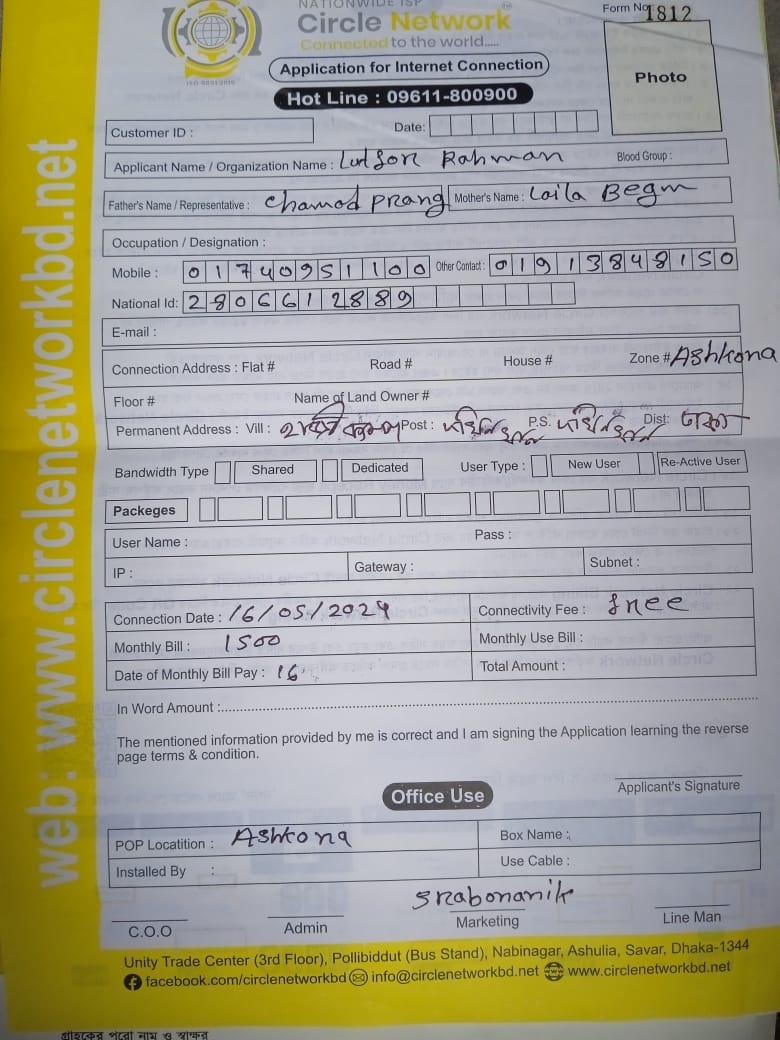 NATIONWIDE ISP
Circle Network
Connected to the world.....
ISO 9001:2015
Form No. 1812
Application for Internet Connection
Hot Line : 09611-800900
Photo
Customer ID :
Date:
Applicant Name / Organization Name : Lutfor Rahman Blood Group :
Father's Name / Representative : Chamod Prang Mother's Name : Laila Begm
Occupation / Designation :
Mobile : 01740951100 Other Contact : 01913848150
National Id: 2806612889
E-mail :
Connection Address : Flat # Road # House # Zone # Ashkona
Floor # Name of Land Owner #
Permanent Address : Vill : Post : P.S: Dist: ঢাকা
Bandwidth Type Shared Dedicated User Type : New User Re-Active User
Packeges
User Name : Pass :
IP : Gateway : Subnet :
Connection Date : 16/05/2024 Connectivity Fee : free
Monthly Bill : 1500 Monthly Use Bill :
Date of Monthly Bill Pay : 16 Total Amount :
In Word Amount :
The mentioned information provided by me is correct and I am signing the Application learning the reverse
page terms & condition.
Applicant's Signature
Office Use
POP Locatition : Ashkona Box Name :
Installed By : Use Cable :
Srabonanik
C.O.O Admin Marketing Line Man
Unity Trade Center (3rd Floor), Pollibiddut (Bus Stand), Nabinagar, Ashulia, Savar, Dhaka-1344
facebook.com/circlenetworkbd info@circlenetworkbd.net www.circlenetworkbd.net
web: www.circlenetworkbd.net
গ্রাহকের পুরো নাম ও স্বাক্ষর